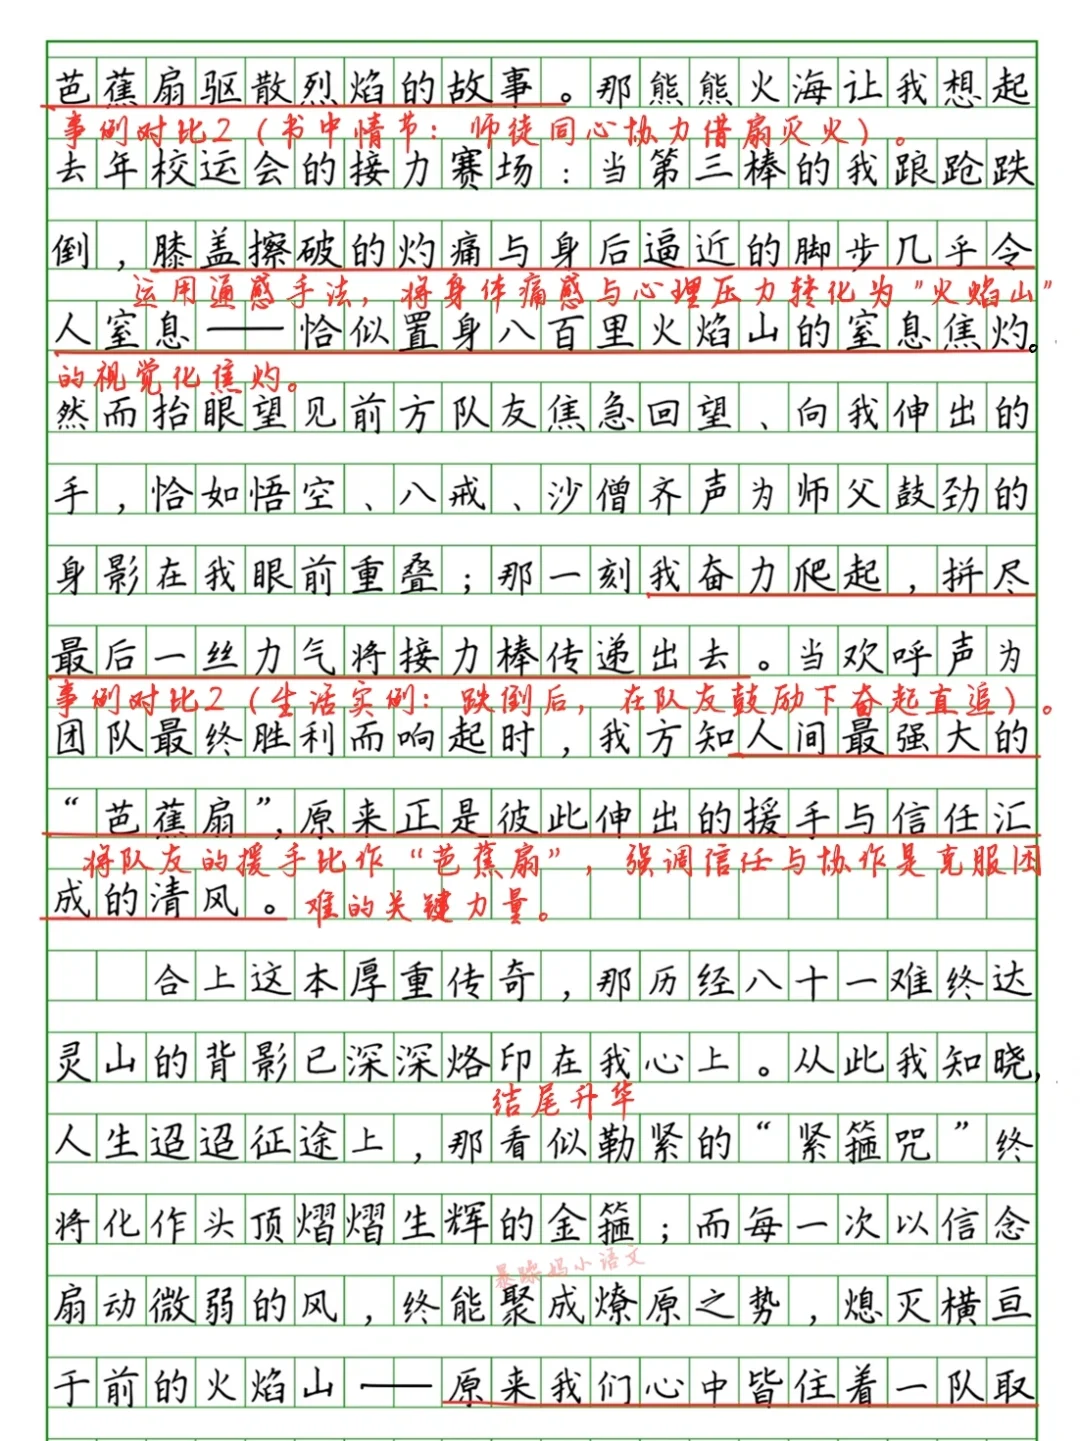 芭蕉扇驱散烈焰的故事。那熊熊火海让我想起
事例对比2（书中情节：师徒同心协力借扇灭火）。
去年校运会的接力赛场：当第三棒的我踉跄跌
倒，膝盖擦破的灼痛与身后逼近的脚步几乎令
运用通感手法，将身体痛感与心理压力转化为"火焰山"
人窒息——恰似置身八百里火焰山的窒息焦灼。
的视觉化焦灼。
然而抬眼望见前方队友焦急回望、向我伸出的
手，恰如悟空、八戒、沙僧齐声为师父鼓劲的
身影在我眼前重叠；那一刻我奋力爬起，拼尽
最后一丝力气将接力棒传递出去。当欢呼声为
事例对比2（生活实例：跌倒后，在队友鼓励下奋起直追）。
团队最终胜利而响起时，我方知人间最强大的
“芭蕉扇”，原来正是彼此伸出的援手与信任汇
将队友的援手比作“芭蕉扇”，强调信任与协作是克服困
成的清风。
难的关键力量。
合上这本厚重传奇，那历经八十一难终达
灵山的背影已深深烙印在我心上。从此我知晓，
结尾升华
人生迢迢征途上，那看似勒紧的“紧箍咒”终
将化作头顶熠熠生辉的金箍；而每一次以信念
暴躁妈小语文
扇动微弱的风，终能聚成燎原之势，熄灭横亘
于前的火焰山——原来我们心中皆住着一队取